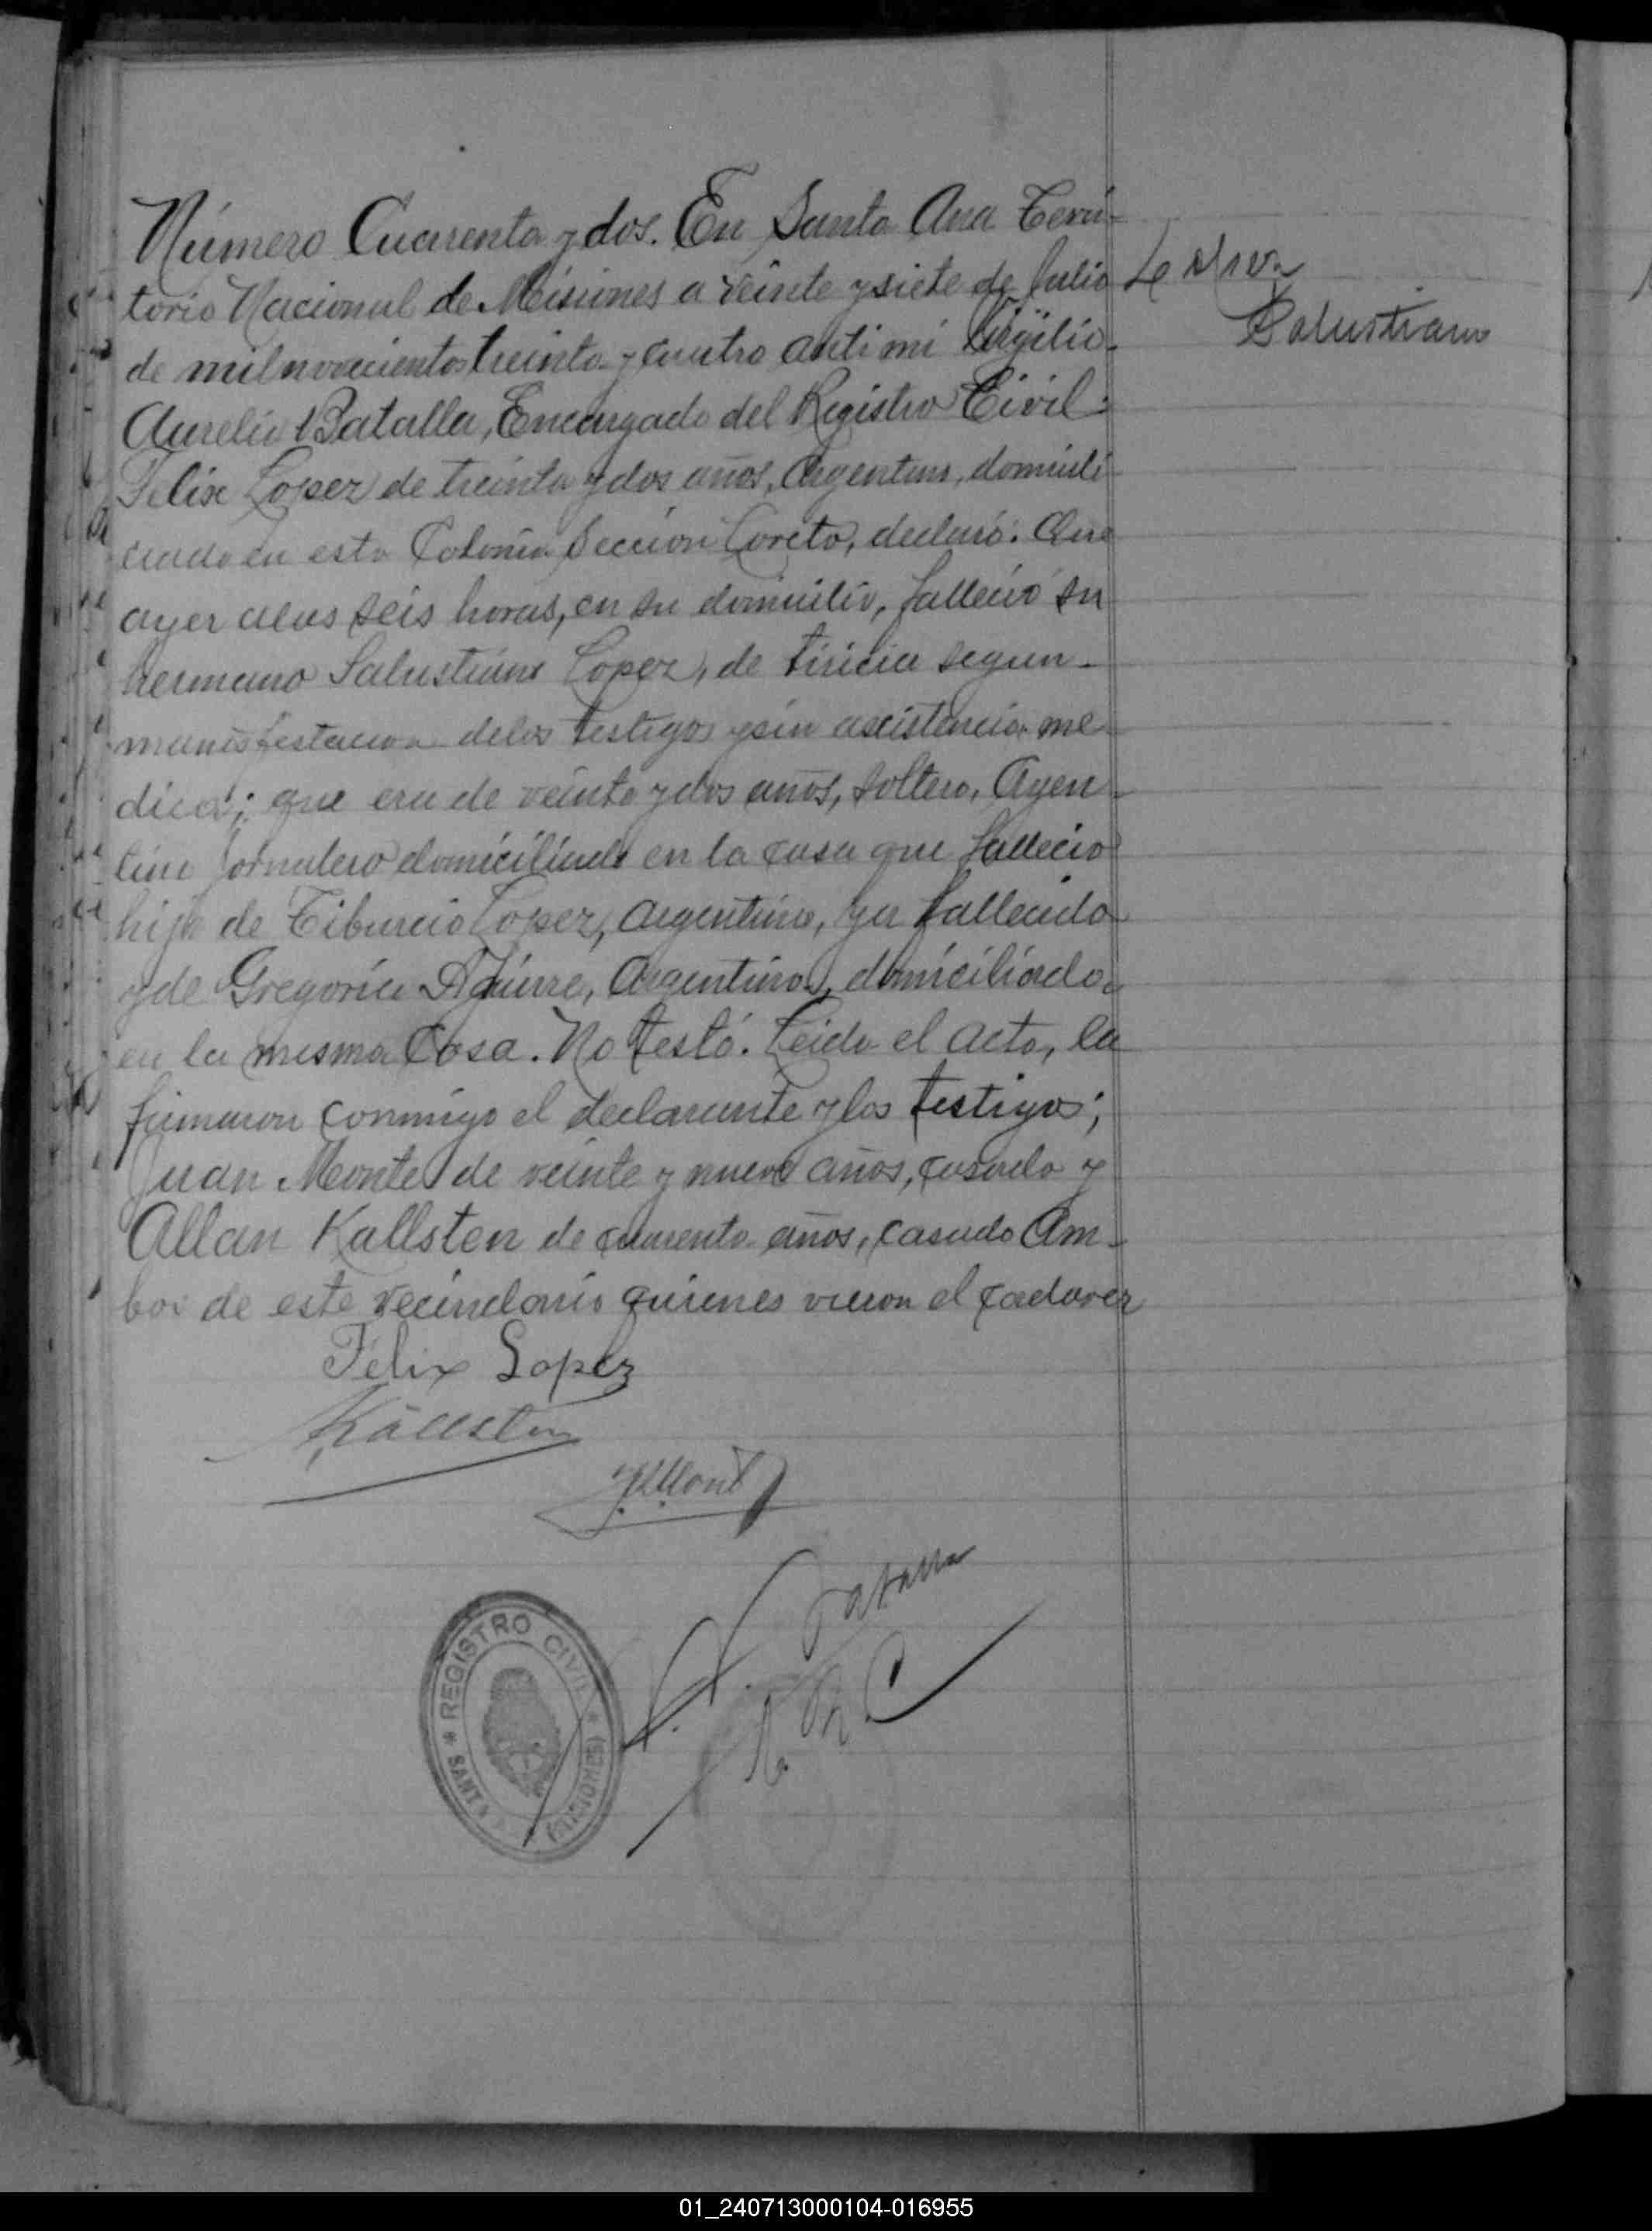 Número Cuarenta y dos. En Santa Ana Terri-
torio Nacional de Misiones a veinte y siete de Julio
de mil novecientos treinta y cuatro anti mi Virgilio
Aurelio Batalla, Encargado del Registro Civil:
Felix Lopez de treinta y dos años, Argentino, domicili
ciado en esta Colonia Sección Loreto, declaró: Que
ayer a las seis horas, en su domicilio, falleció su
hermano Salustiano Lopez, de tiricia segun-
manisfestacion de los testigos y sin asistencia me
dica; que era de veinte y dos años, soltero, Argen-
tino jornalero domiciliado en la casa que fallecio
hijo de Tiburcio Lopez, Argentino, ya fallecido
y de Gregoria Aguirre, Argentina, domiciliada
en la misma casa. No testó. Leida el acta, la
firmaron conmigo el declarante y los testigos;
Juan Monte de veinte y nueve años, casado y
Allan Kallsten de cuarenta años, casado Am-
bos de este vecindario quienes vieron el cadaver
Lopez
Salustiano
Félix Lopez
Källsten
JMont
V. A. Batalla
E. R. C
REGISTRO CIVIL
SANTA
(MISIONES)
01_240713000104-016955